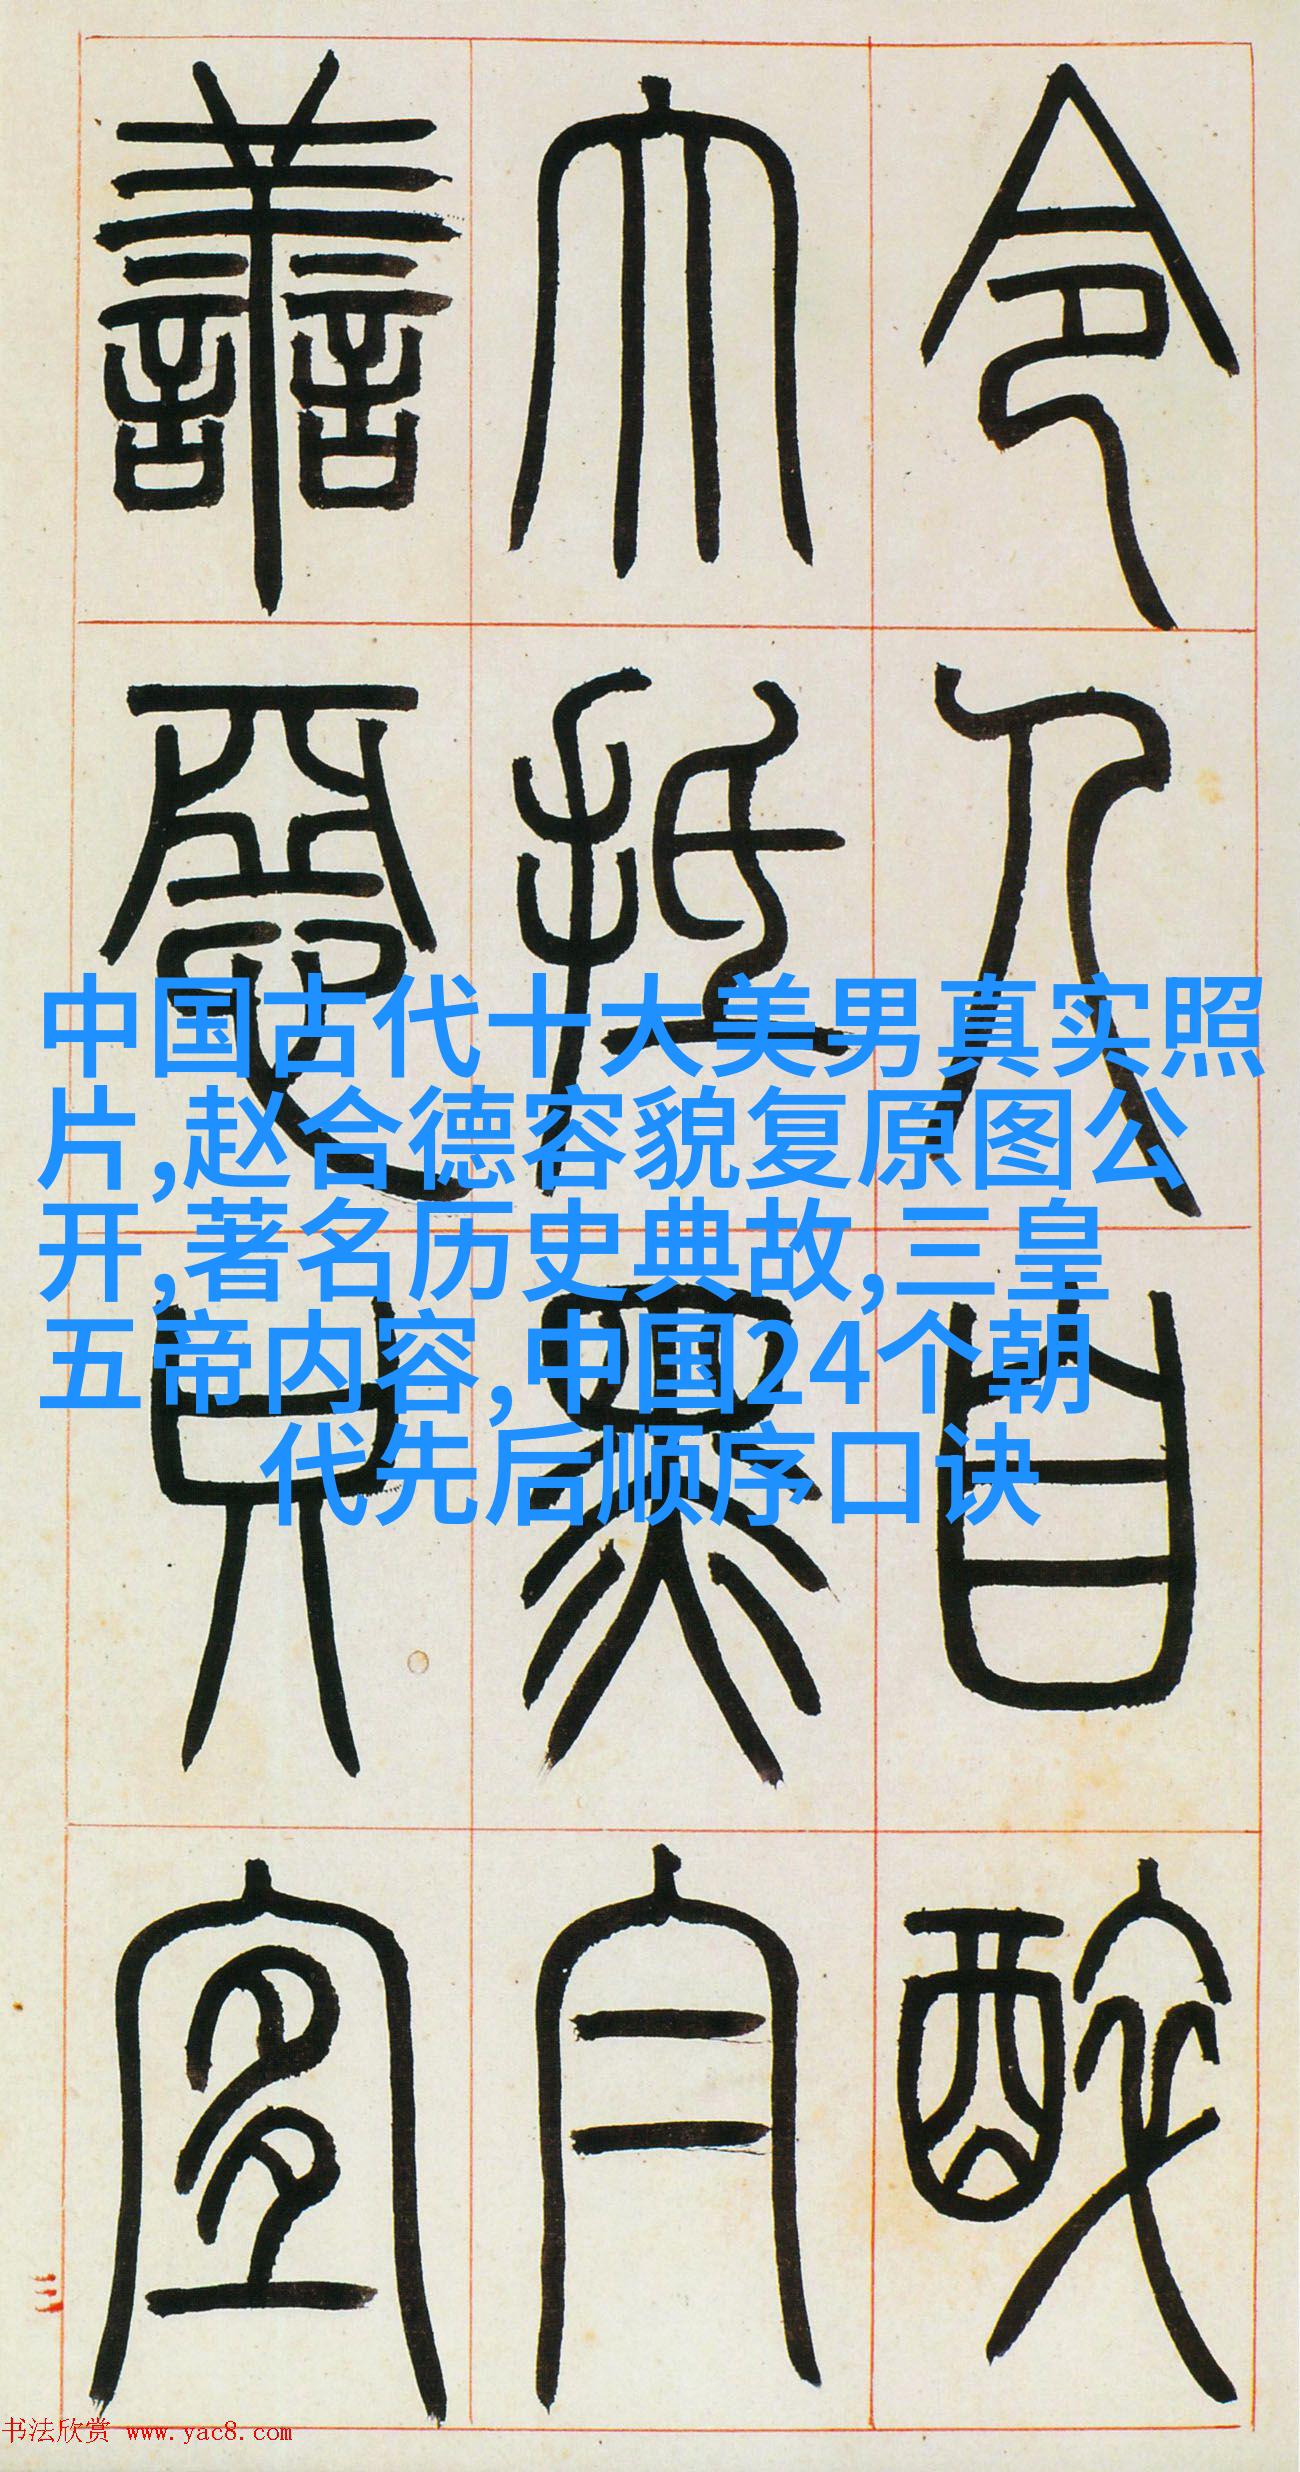 令人自醉
大抵
善惡宜
中国古代十大美男真实照
片,赵合德容貌复原图公
开,著名历史典故,三皇
五帝内容,中国24个朝
代先后顺序口诀
三
书法欣赏 www.yac8.com